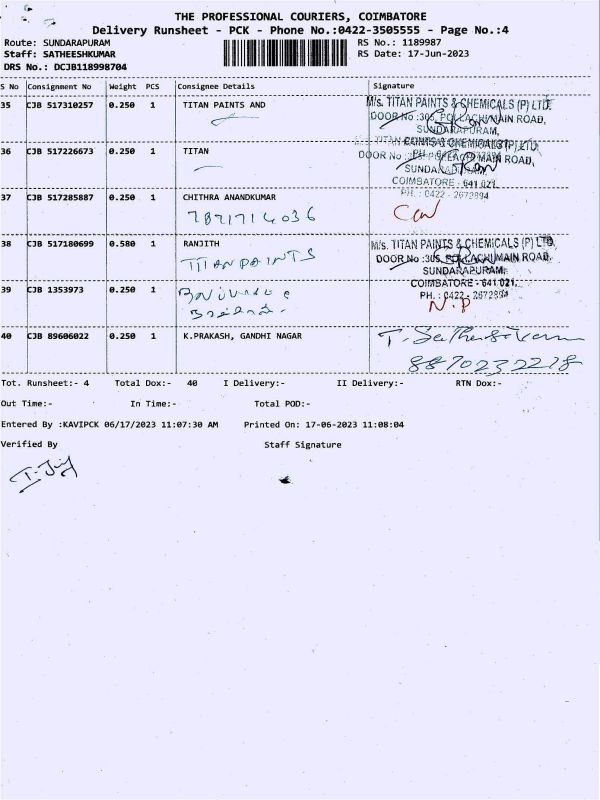 THE PROFESSIONAL COURIERS, COIMBATORE
Delivery Runsheet - PCK - Phone No.:0422-3505555 - Page No.:4
Route: SUNDARAPURAM
RS No.: 1189987
Staff: SATHEESHKUMAR
RS Date: 17-Jun-2023
DRS No.: DCJB118998704
S No Consignment No Weight PCS Consignee Details Signature
35 CJB 517310257 0.250 1 TITAN PAINTS AND
M/s. TITAN PAINTS & CHEMICALS (P) LTD
DOOR No :305, POLLACHI MAIN ROAD,
SUNDARAPURAM,
36 CJB 517226673 0.250 1 TITAN
TITAN PAINTS & CHEMICALS (P) LTD.
DOOR No :305, POLLACHI MAIN ROAD,
SUNDARAPURAM,
COIMBATORE - 641 021.
PH. : 0422 - 2672894
37 CJB 517285887 0.250 1 CHITHRA ANANDKUMAR
7871714036
38 CJB 517180699 0.580 1 RANJITH
TITAN PAINTS
M/s. TITAN PAINTS & CHEMICALS (P) LTD,
DOOR No :305, POLLACHI MAIN ROAD,
SUNDARAPURAM,
COIMBATORE - 641 021.
PH. : 0422 - 2672894
39 CJB 1353973 0.250 1
N.P
40 CJB 89606022 0.250 1 K.PRAKASH, GANDHI NAGAR
T. Satheeshkumar
8870232218
Tot. Runsheet:- 4 Total Dox:- 40 I Delivery:- II Delivery:- RTN Dox:-
Out Time:- In Time:- Total POD:-
Entered By :KAVIPCK 06/17/2023 11:07:30 AM Printed On: 17-06-2023 11:08:04
Verified By Staff Signature